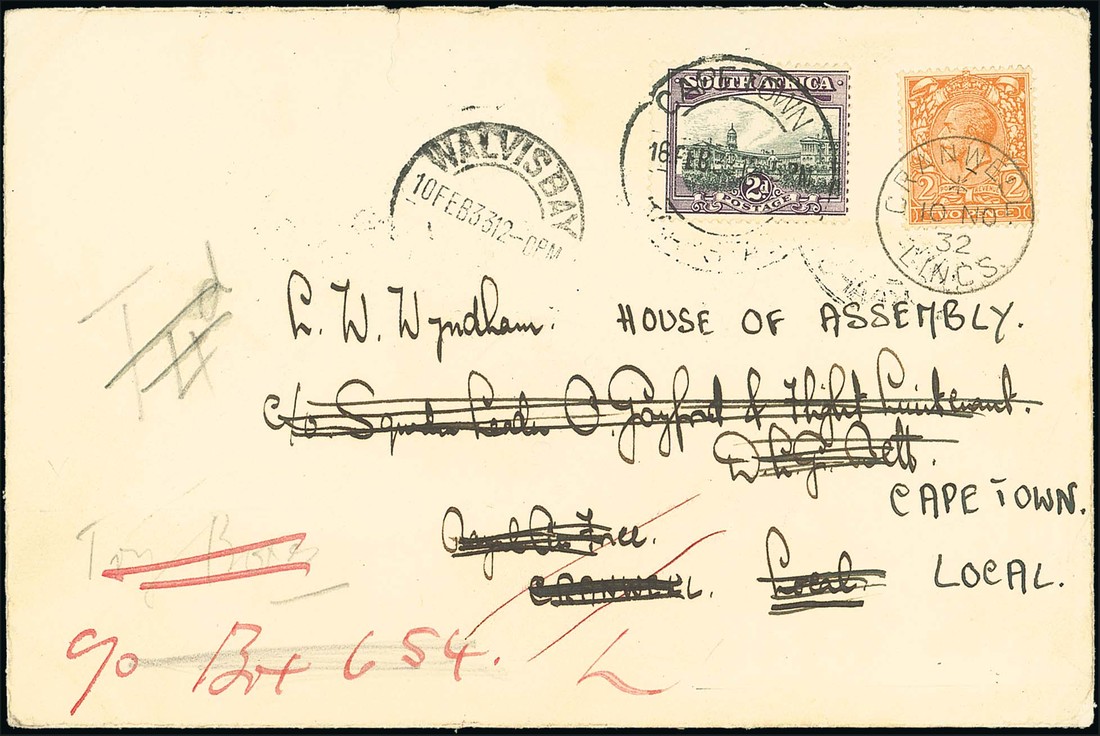 SOUTH AFRICA
2d
POSTAGE
CAPE TOWN
16 FEB
2 2
REVENUE
CRANWELL
10 NO
32
LINCS.
WALVISBAY
10FEB3312-0PM
T 4d
L. W. Wyndham. HOUSE OF ASSEMBLY.
c/o. Squadron Leader O. Gayford & Flight Lieutenant.
D. L. G. Bett.
CAPE TOWN.
Royal Air Force.
CRANWELL. Local. LOCAL.
Try Boxes
c/o Box 654.